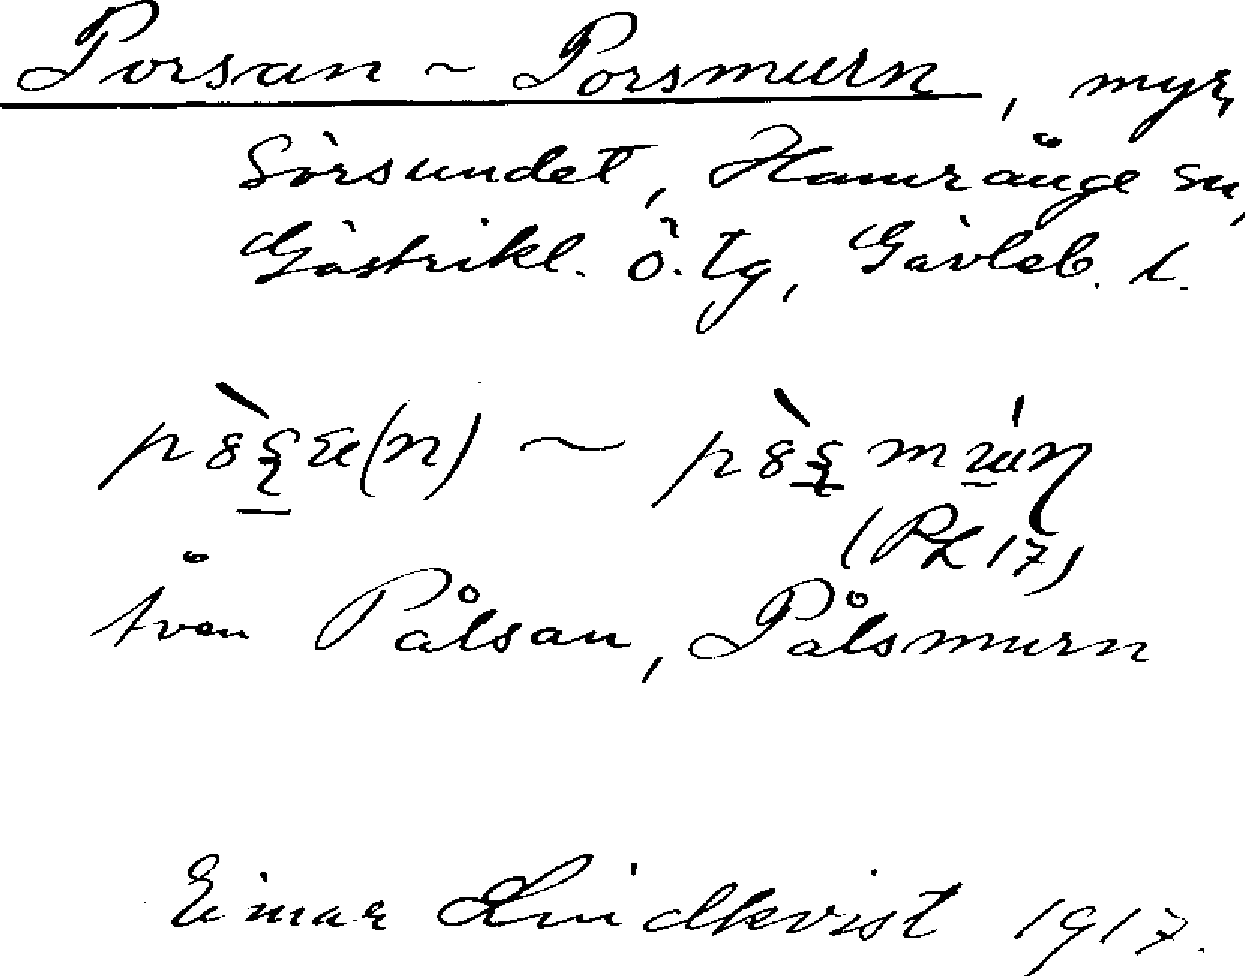 Porsan ~ Porsmurn, myr,
Sörsundet, Hamrånge sn,
Gästrikl. ö. tg, Gävleb. l.
(PL 17)
Även Pålsan, Pålsmurn
Einar Lindkvist 1917.